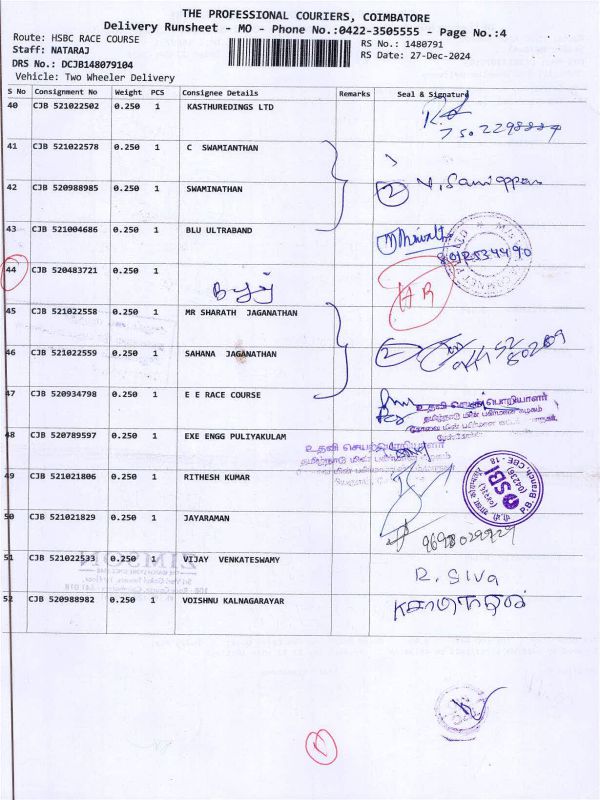 THE PROFESSIONAL COURIERS, COIMBATORE
Delivery Runsheet - MO - Phone No.:0422-3505555 - Page No.:4
Route: HSBC RACE COURSE
RS No.: 1480791
Staff: NATARAJ
RS Date: 27-Dec-2024
DRS No.: DCJB148079104
Vehicle: Two Wheeler Delivery
S No Consignment No Weight PCS Consignee Details Remarks Seal & Signature
40 CJB 521022502 0.250 1 KASTHUREDINGS LTD
41 CJB 521022578 0.250 1 C SWAMIANTHAN
42 CJB 520988985 0.250 1 SWAMINATHAN 2
43 CJB 521004686 0.250 1 BLU ULTRABAND
44 CJB 520483721 0.250 1
45 CJB 521022558 0.250 1 MR SHARATH JAGANATHAN
46 CJB 521022559 0.250 1 SAHANA JAGANATHAN 2
47 CJB 520934798 0.250 1 E E RACE COURSE
உதவி செயற்பொறியாளர்
48 CJB 520789597 0.250 1 EXE ENGG PULIYAKULAM
உதவி செயற்பொறியாளர்
49 CJB 521021806 0.250 1 RITHESH KUMAR
SBI
P.B. Branch, CBE - 18
50 CJB 521021829 0.250 1 JAYARAMAN
9698029929
51 CJB 521022533 0.250 1 VIJAY VENKATESWAMY R. SIVA
52 CJB 520988982 0.250 1 VOISHNU KALNAGARAYAR